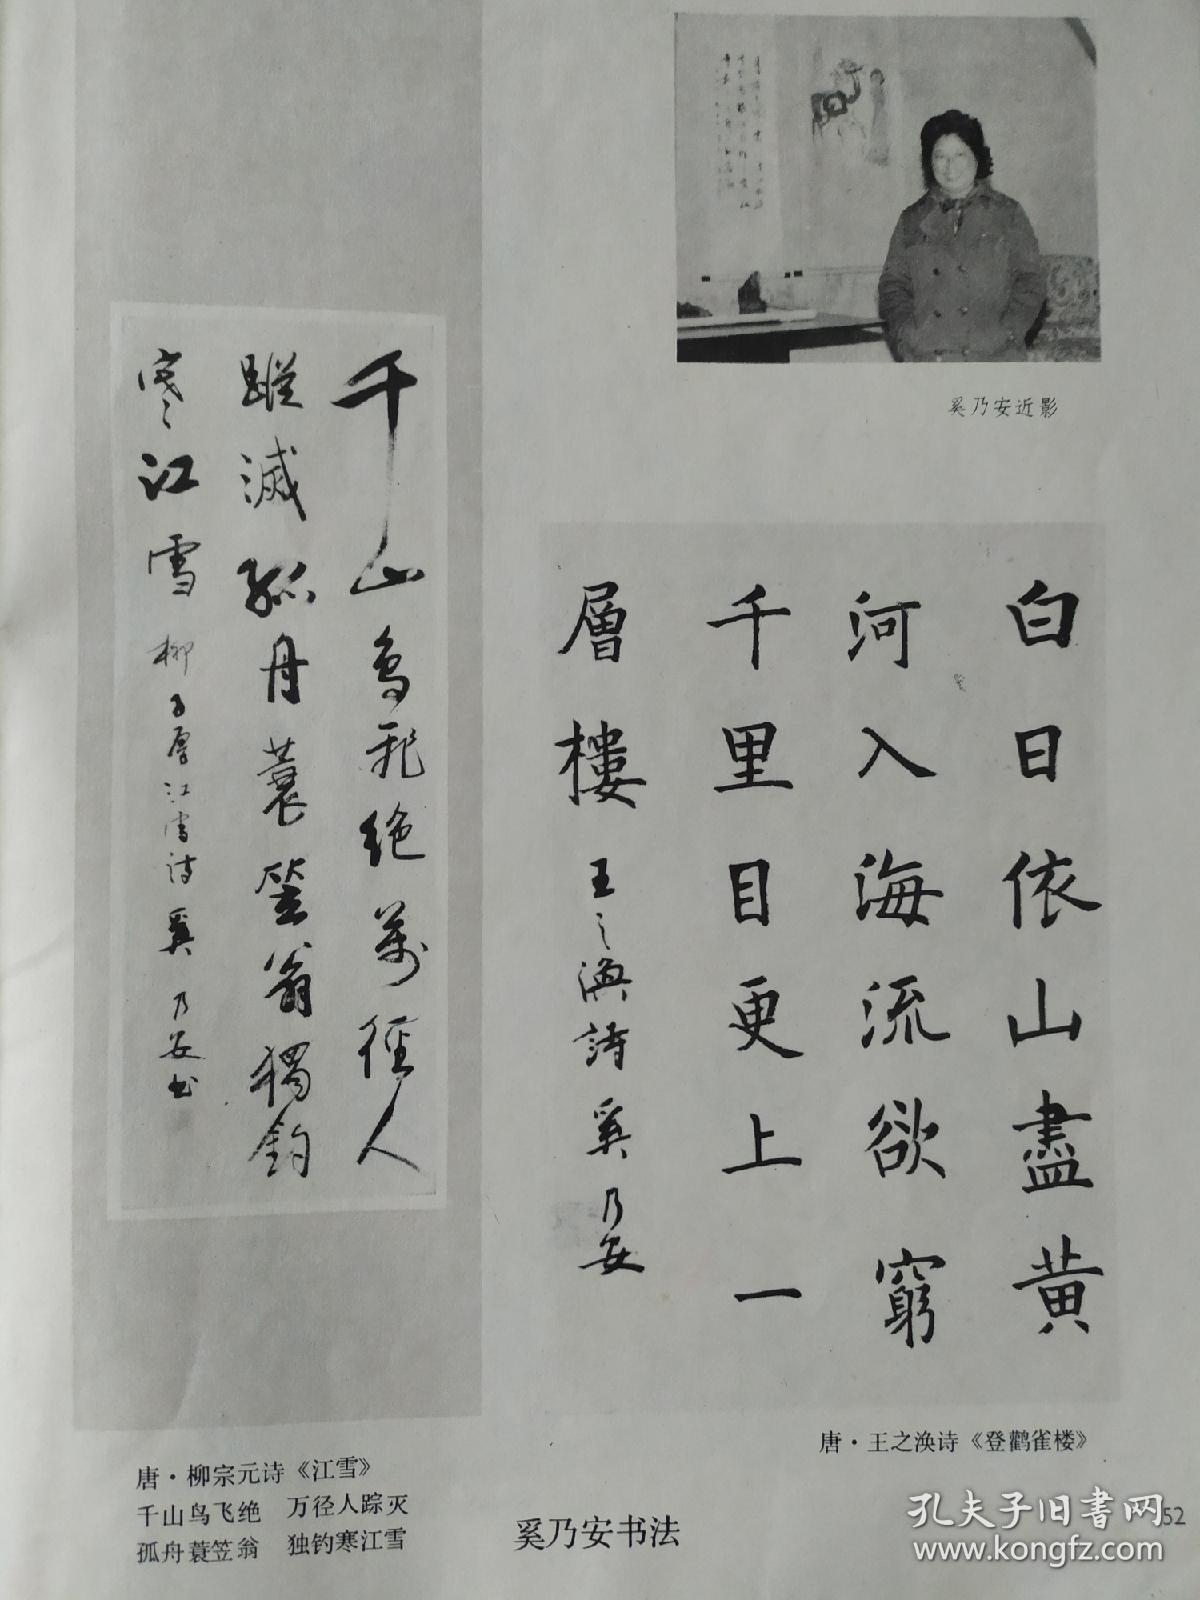 奚乃安近影
白日依山盡黄
河入海流欲窮
千里目更上一
層樓
王之渙詩 奚乃安
唐·王之涣诗《登鹳雀楼》
千山鸟飛绝萬径人
蹤滅孤舟蓑笠翁獨釣
寒江雪
柳子厚江雪诗 奚乃安书
唐·柳宗元诗《江雪》
千山鸟飞绝 万径人踪灭
孤舟蓑笠翁 独钓寒江雪
奚乃安书法
52
孔夫子旧书网
www.kongfz.com